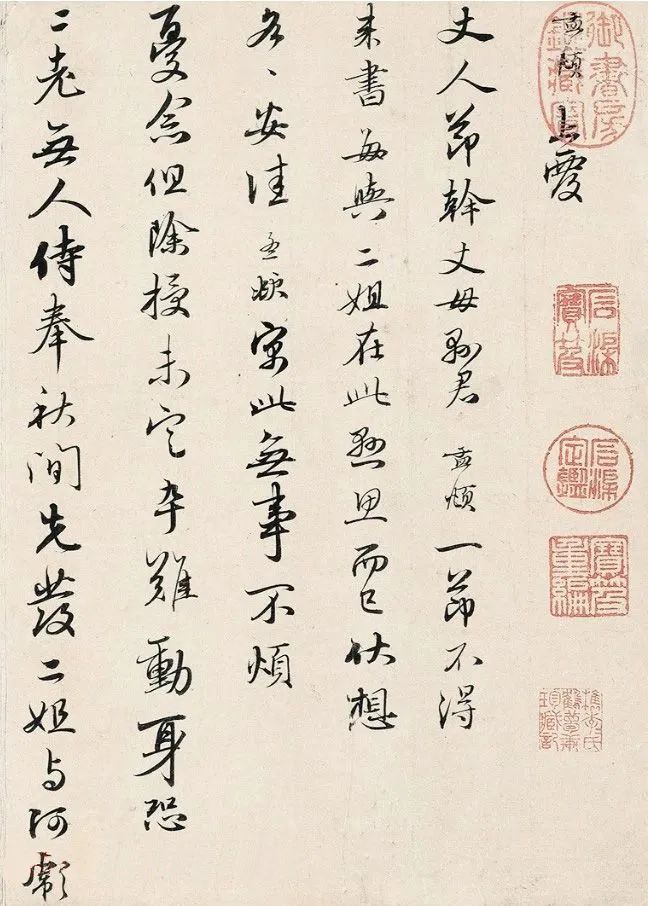 孟頫上覆
丈人節幹丈母縣君孟頫一節不得
来書每與二姐在此懸思而已伏想
各各安佳孟頫寓此無事不煩
憂念但除授未定卒難動身恐
二老無人侍奉秋間先發二姐与阿彪
御書房鑑藏寶
石渠寶笈
石渠定鑑
寶笈重編